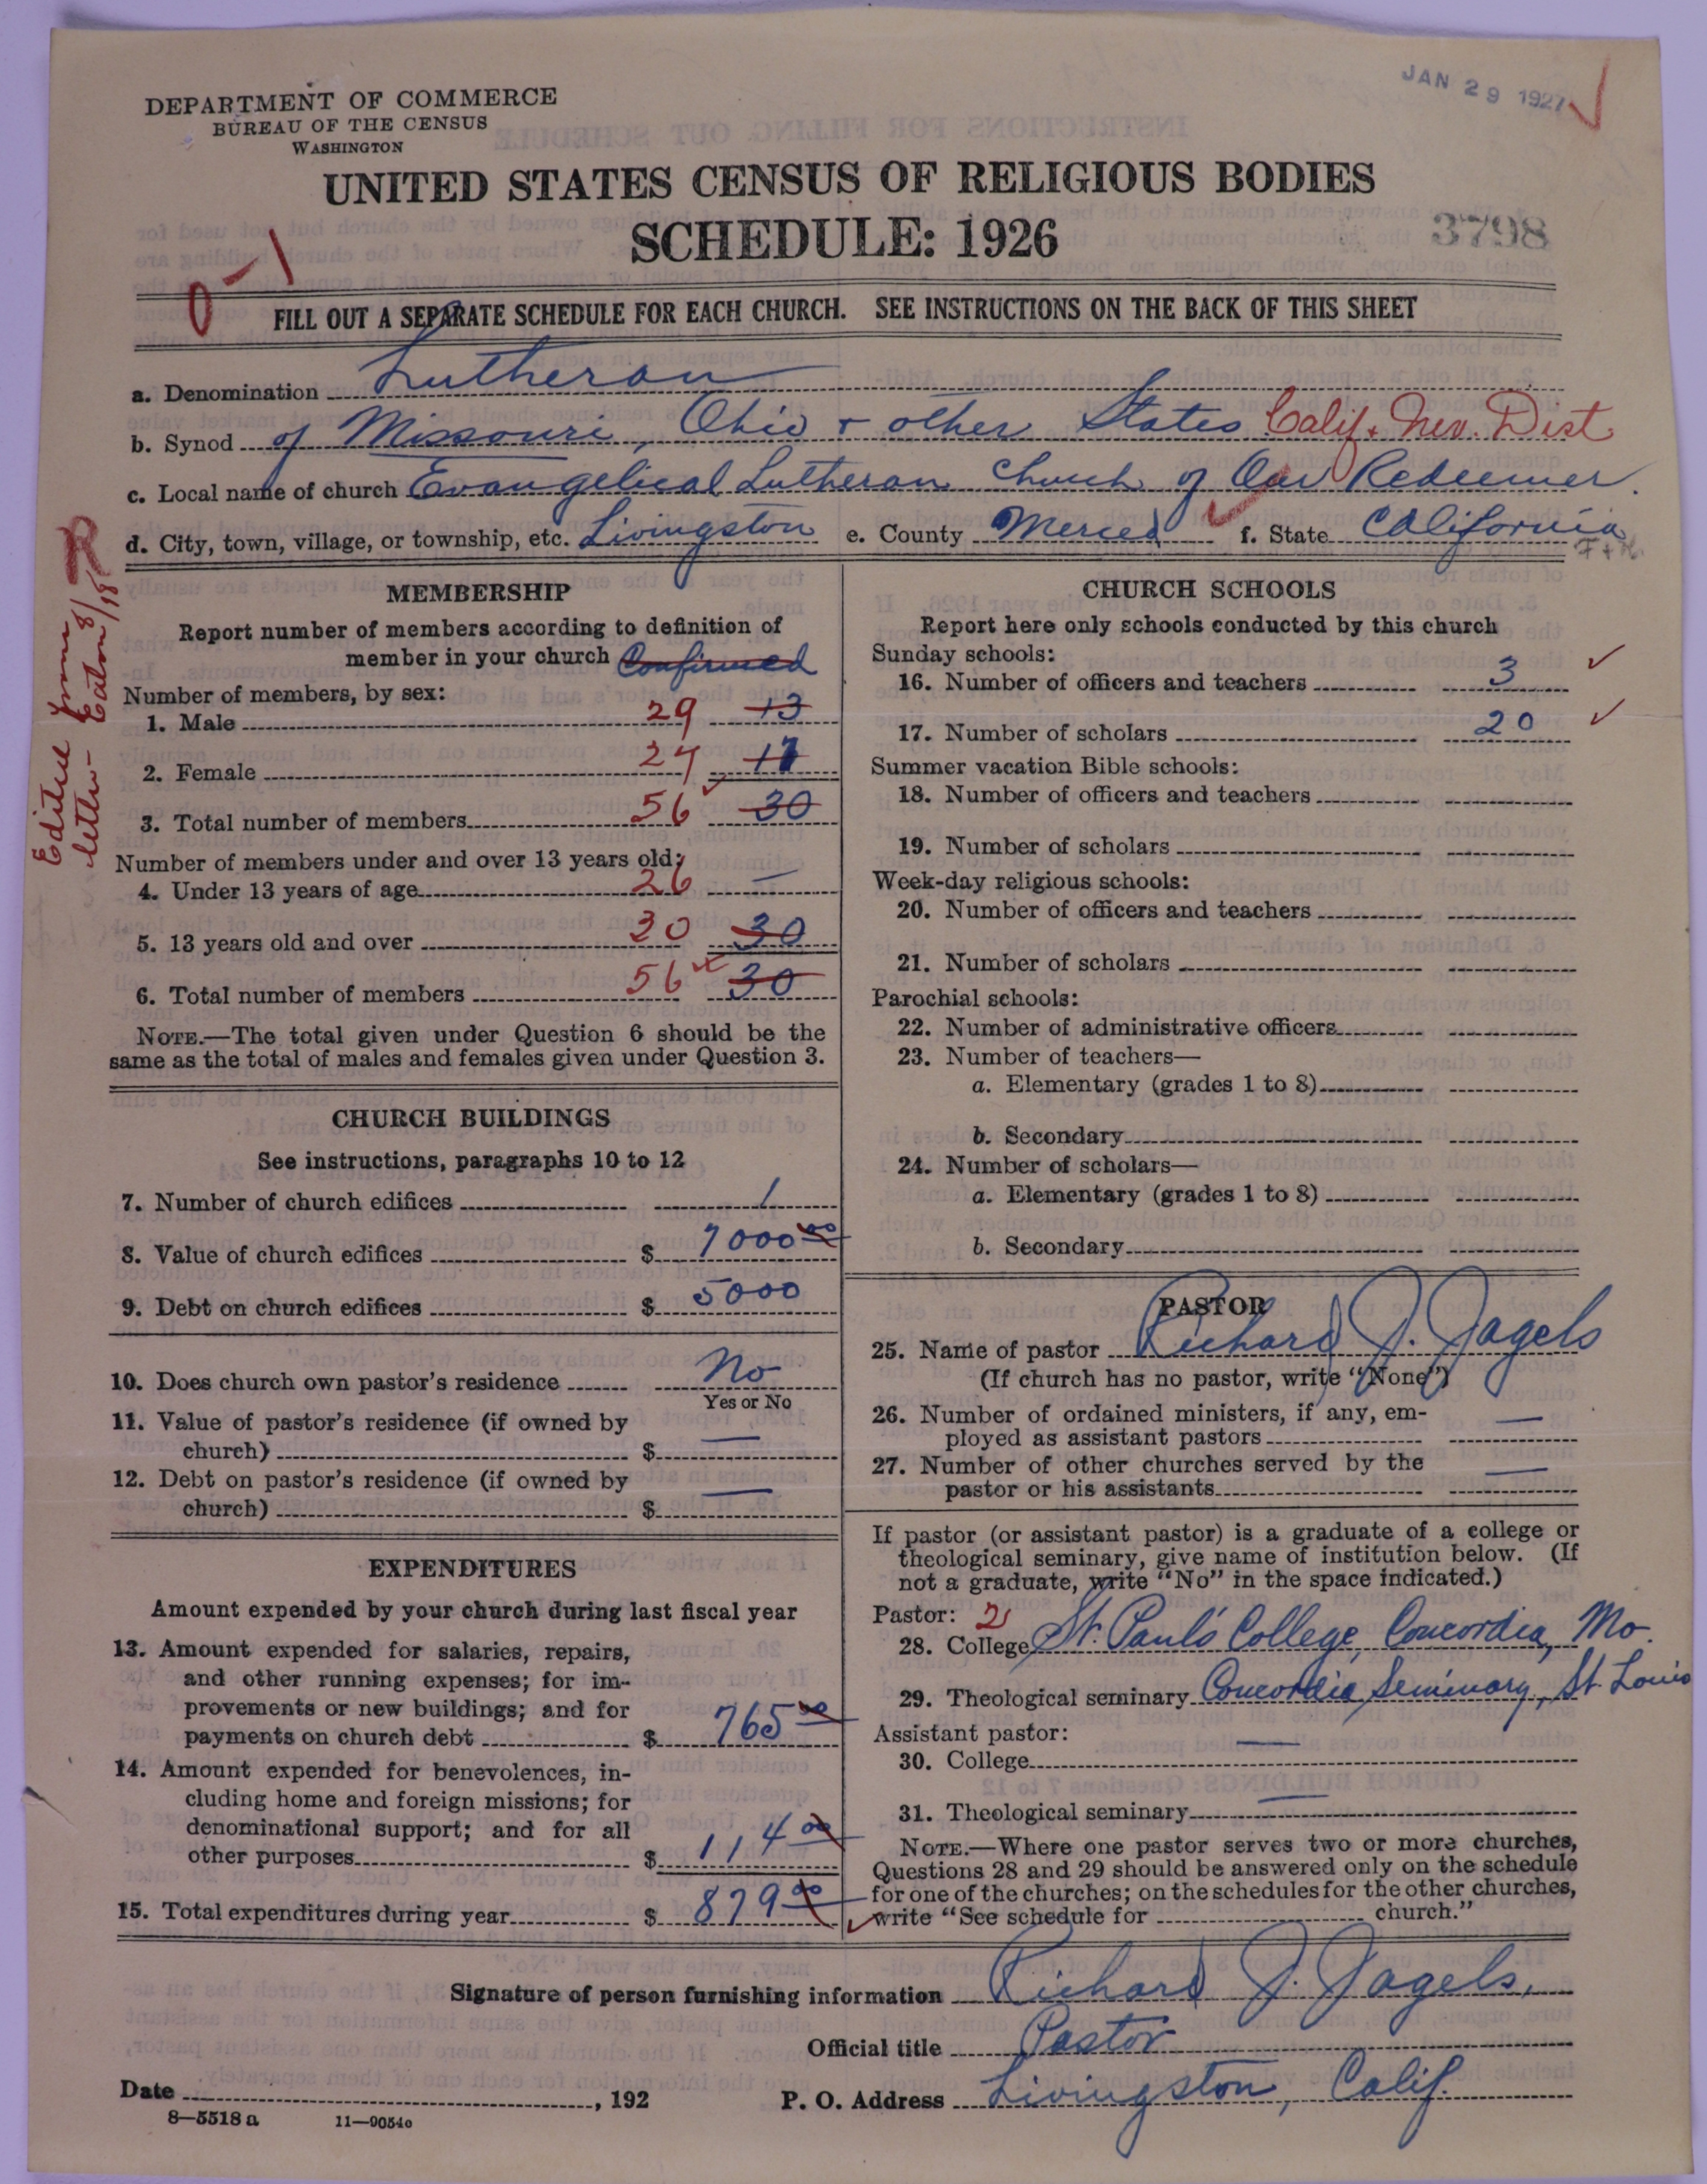 JAN 29 1927
DEPARTMENT OF COMMERCE
BUREAU OF THE CENSUS
WASHINGTON
UNITED STATES CENSUS OF RELIGIOUS BODIES
SCHEDULE: 1926
3798
0-1
FILL OUT A SEPARATE SCHEDULE FOR EACH CHURCH. SEE INSTRUCTIONS ON THE BACK OF THIS SHEET
a. Denomination Lutheran
b. Synod of Missouri, Ohio + other States Calif. Nev. Dist
c. Local name of church Evangelical Lutheran Church of Our Redeemer.
d. City, town, village, or township, etc. Livingston e. County Merced f. State California
R
Edited from
letter- Eaton 8/18
MEMBERSHIP
Report number of members according to definition of
member in your church Confirmed
Number of members, by sex:
1. Male 29 13
2. Female 27 17
3. Total number of members 56 30
Number of members under and over 13 years old:
4. Under 13 years of age 26 —
5. 13 years old and over 30 30
6. Total number of members 56 30
NOTE.—The total given under Question 6 should be the
same as the total of males and females given under Question 3.
CHURCH BUILDINGS
See instructions, paragraphs 10 to 12
7. Number of church edifices 1
8. Value of church edifices $ 7000 00
9. Debt on church edifices $ 5000
10. Does church own pastor's residence No
Yes or No
11. Value of pastor's residence (if owned by
church) $ —
12. Debt on pastor's residence (if owned by
church) $ —
EXPENDITURES
Amount expended by your church during last fiscal year
13. Amount expended for salaries, repairs,
and other running expenses; for im-
provements or new buildings; and for
payments on church debt $ 765 00
14. Amount expended for benevolences, in-
cluding home and foreign missions; for
denominational support; and for all
other purposes $ 114 00
15. Total expenditures during year $ 879 00
CHURCH SCHOOLS
Report here only schools conducted by this church
Sunday schools:
16. Number of officers and teachers 3
17. Number of scholars 20
Summer vacation Bible schools:
18. Number of officers and teachers
19. Number of scholars
Week-day religious schools:
20. Number of officers and teachers
21. Number of scholars
Parochial schools:
22. Number of administrative officers
23. Number of teachers—
a. Elementary (grades 1 to 8)
b. Secondary
24. Number of scholars—
a. Elementary (grades 1 to 8)
b. Secondary
PASTOR
25. Name of pastor Richard J. Jagels
(If church has no pastor, write "None")
26. Number of ordained ministers, if any, em-
ployed as assistant pastors —
27. Number of other churches served by the
pastor or his assistants —
If pastor (or assistant pastor) is a graduate of a college or
theological seminary, give name of institution below. (If
not a graduate, write "No" in the space indicated.)
Pastor:
28. College St. Paul's College, Concordia, Mo.
29. Theological seminary Concordia Seminary, St. Louis
Assistant pastor:
30. College —
31. Theological seminary —
NOTE.—Where one pastor serves two or more churches,
Questions 28 and 29 should be answered only on the schedule
for one of the churches; on the schedules for the other churches,
write "See schedule for church."
Signature of person furnishing information Richard J. Jagels.
Official title Pastor
Date , 192 P. O. Address Livingston, Calif.
8—5518 a 11—9054c